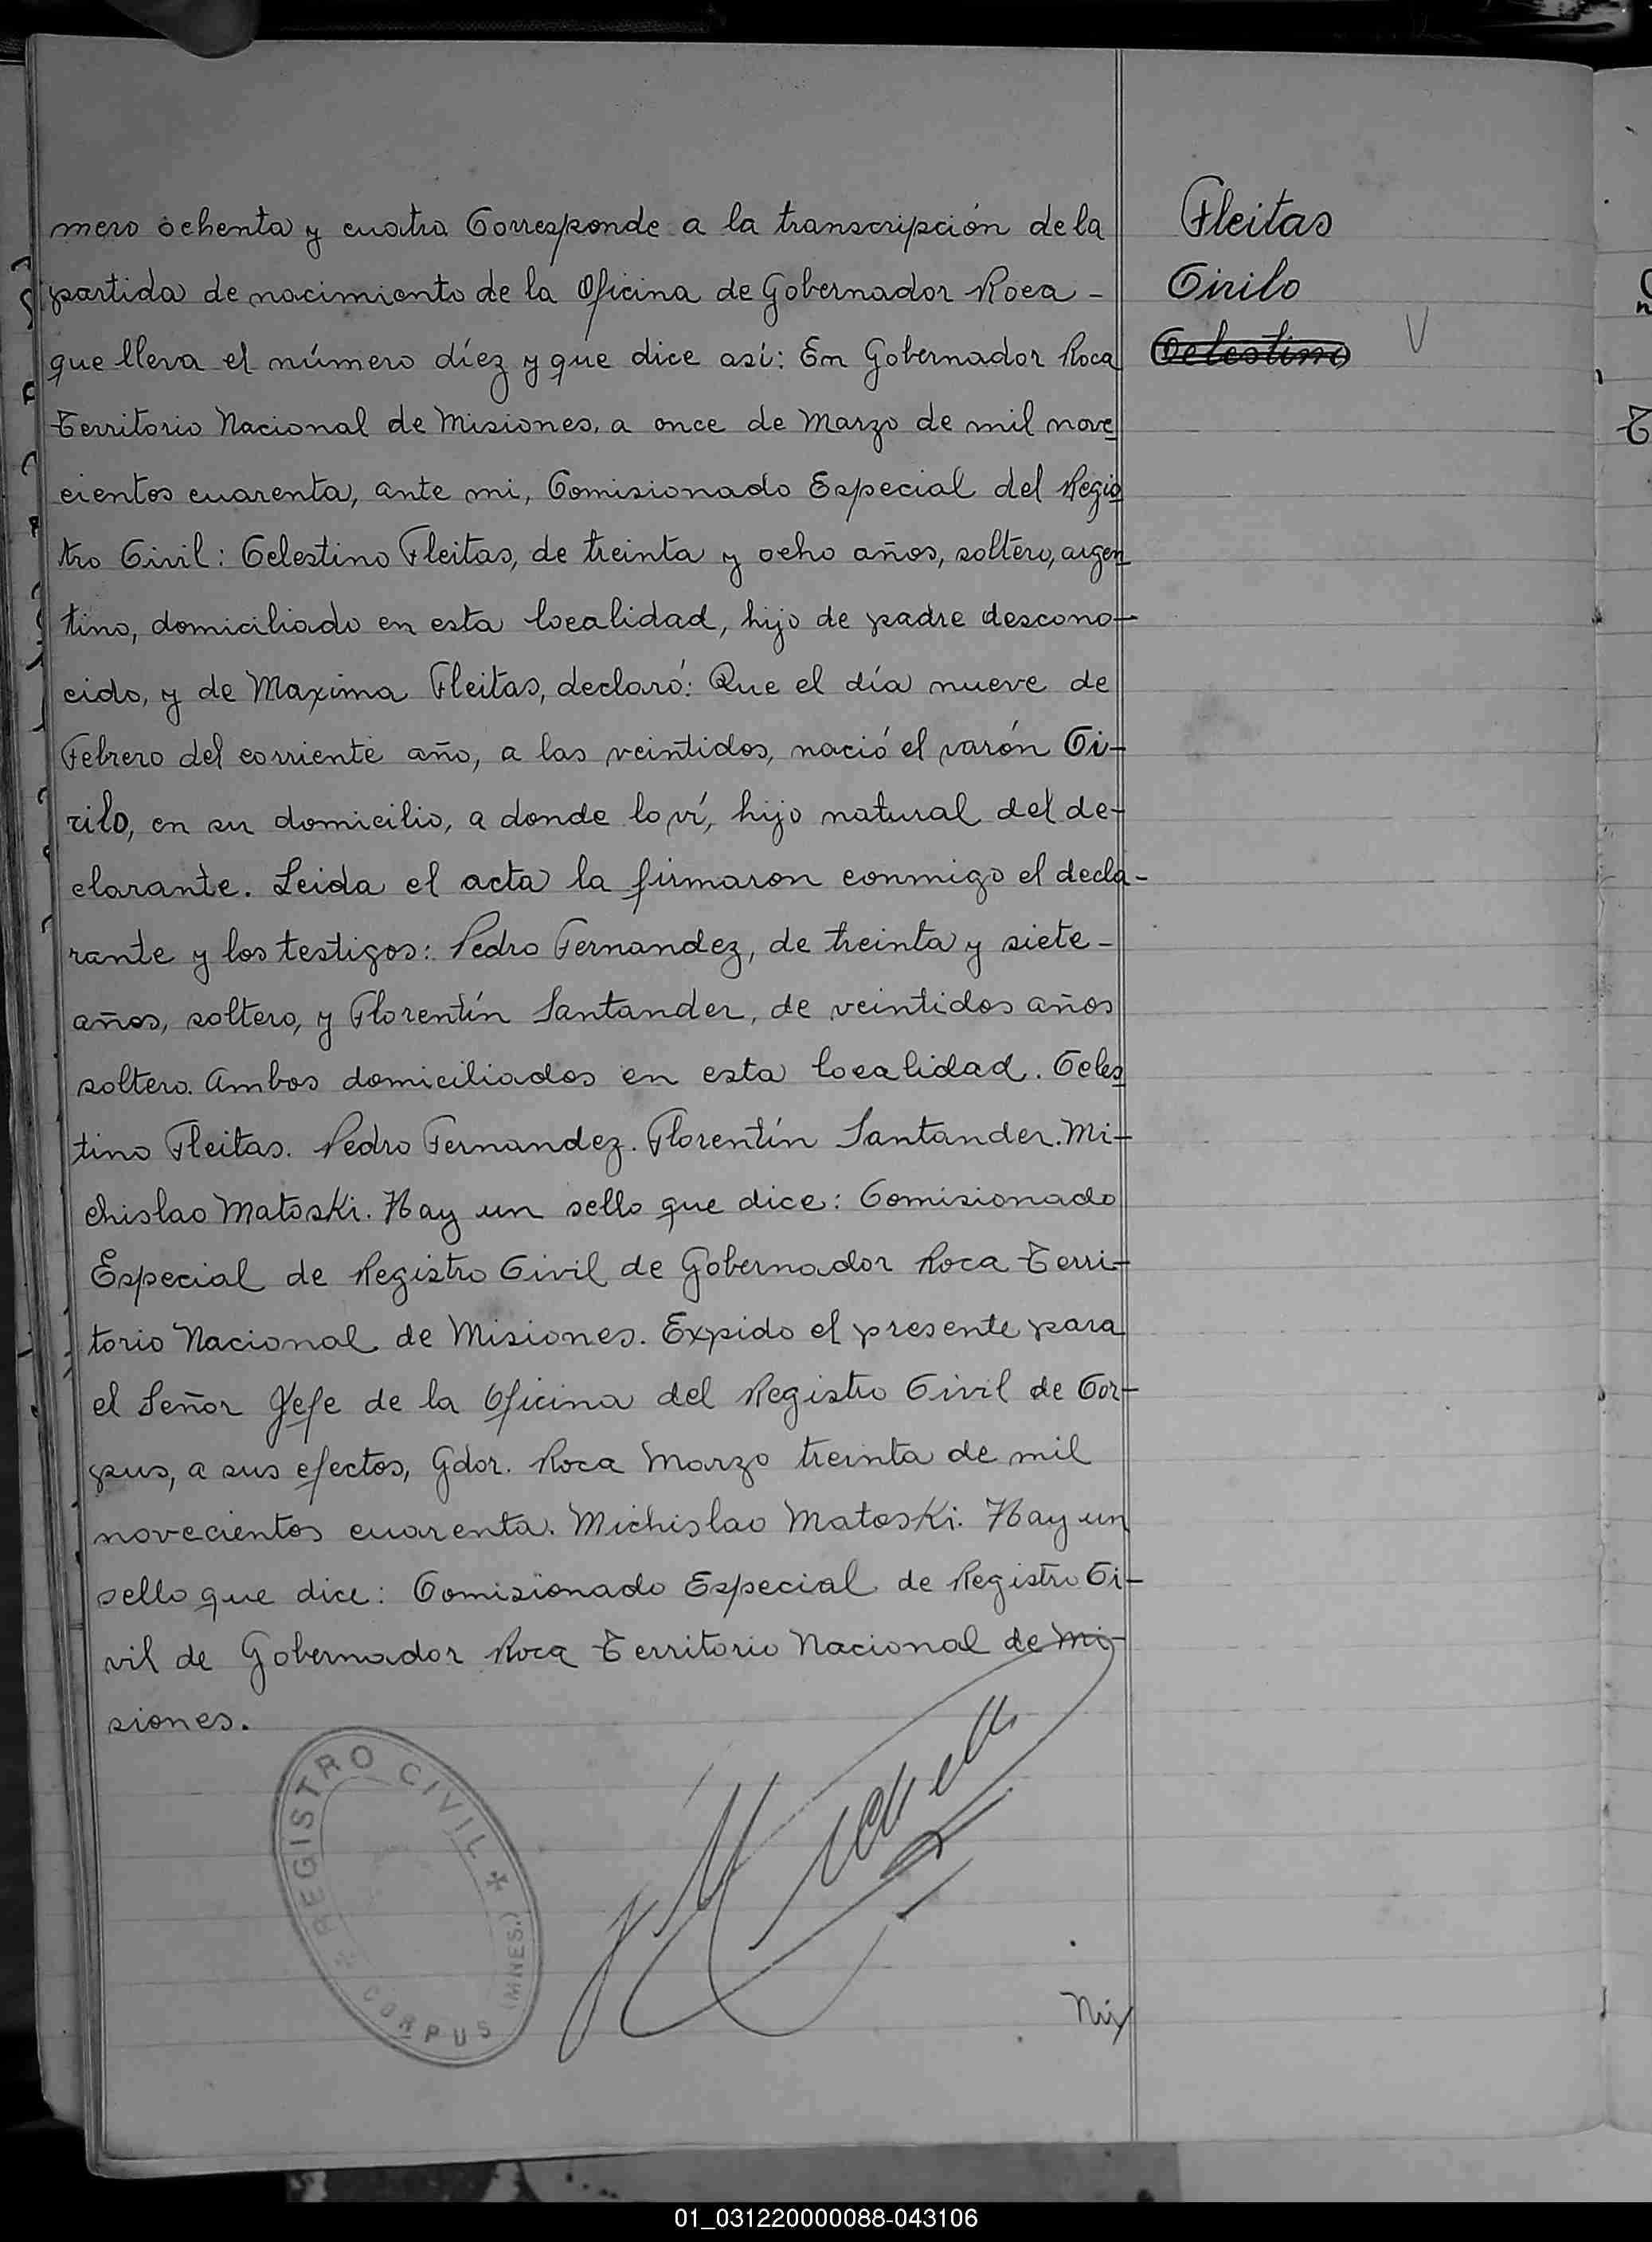 mero ochenta y cuatro Corresponde a la transcripción de la
partida de nacimiento de la Oficina de Gobernador Roca -
que lleva el número díez y que dice así: En Gobernador Roca
Territorio Nacional de Misiones, a once de Marzo de mil nove
cientos cuarenta, ante mi, Comisionado Especial del Regis
tro Civil: Celestino Fleitas, de treinta y ocho años, soltero, argen
tino, domiciliado en esta localidad, hijo de padre descono-
cido, y de Maxima Fleitas, declaró: Que el día nueve de
Febrero del corriente año, a las veintidos, nació el varón Ci-
rilo, en su domicilio, a donde lo ví, hijo natural del de-
clarante. Leida el acta la firmaron conmigo el decla-
rante y los testigos: Pedro Fernandez, de treinta y siete -
años, soltero, y Florentín Santander, de veintidos años
soltero. Ambos domiciliados en esta localidad. Celes
tino Fleitas. Pedro Fernandez. Florentín Santander. Mi-
chislao Matoski. Hay un sello que dice: Comisionado
Especial de Registro Civil de Gobernador Roca Terri-
torio Nacional de Misiones. Expido el presente para
el Señor Jefe de la Oficina del Registro Civil de Cor-
pus, a sus efectos, Gdor. Roca Marzo treinta de mil
novecientos cuarenta. Michislao Matoski. Hay un
sello que dice: Comisionado Especial de Registro Ci-
vil de Gobernador Roca Territorio Nacional de Mi-
siones.
Fleitas
Cirilo
Celestino
REGISTRO CIVIL
CORPUS (MNES.)
Nú
01_031220000088-043106